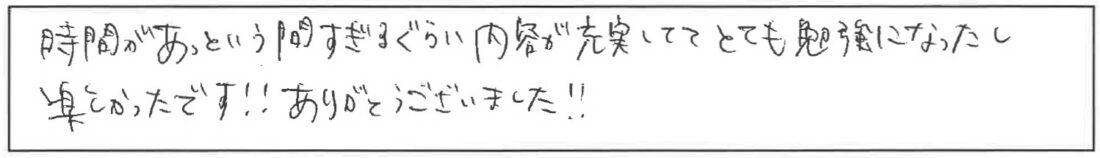 時間があっという間すぎるぐらい内容が充実しててとても勉強になったし
楽しかったです!!ありがとうございました!!